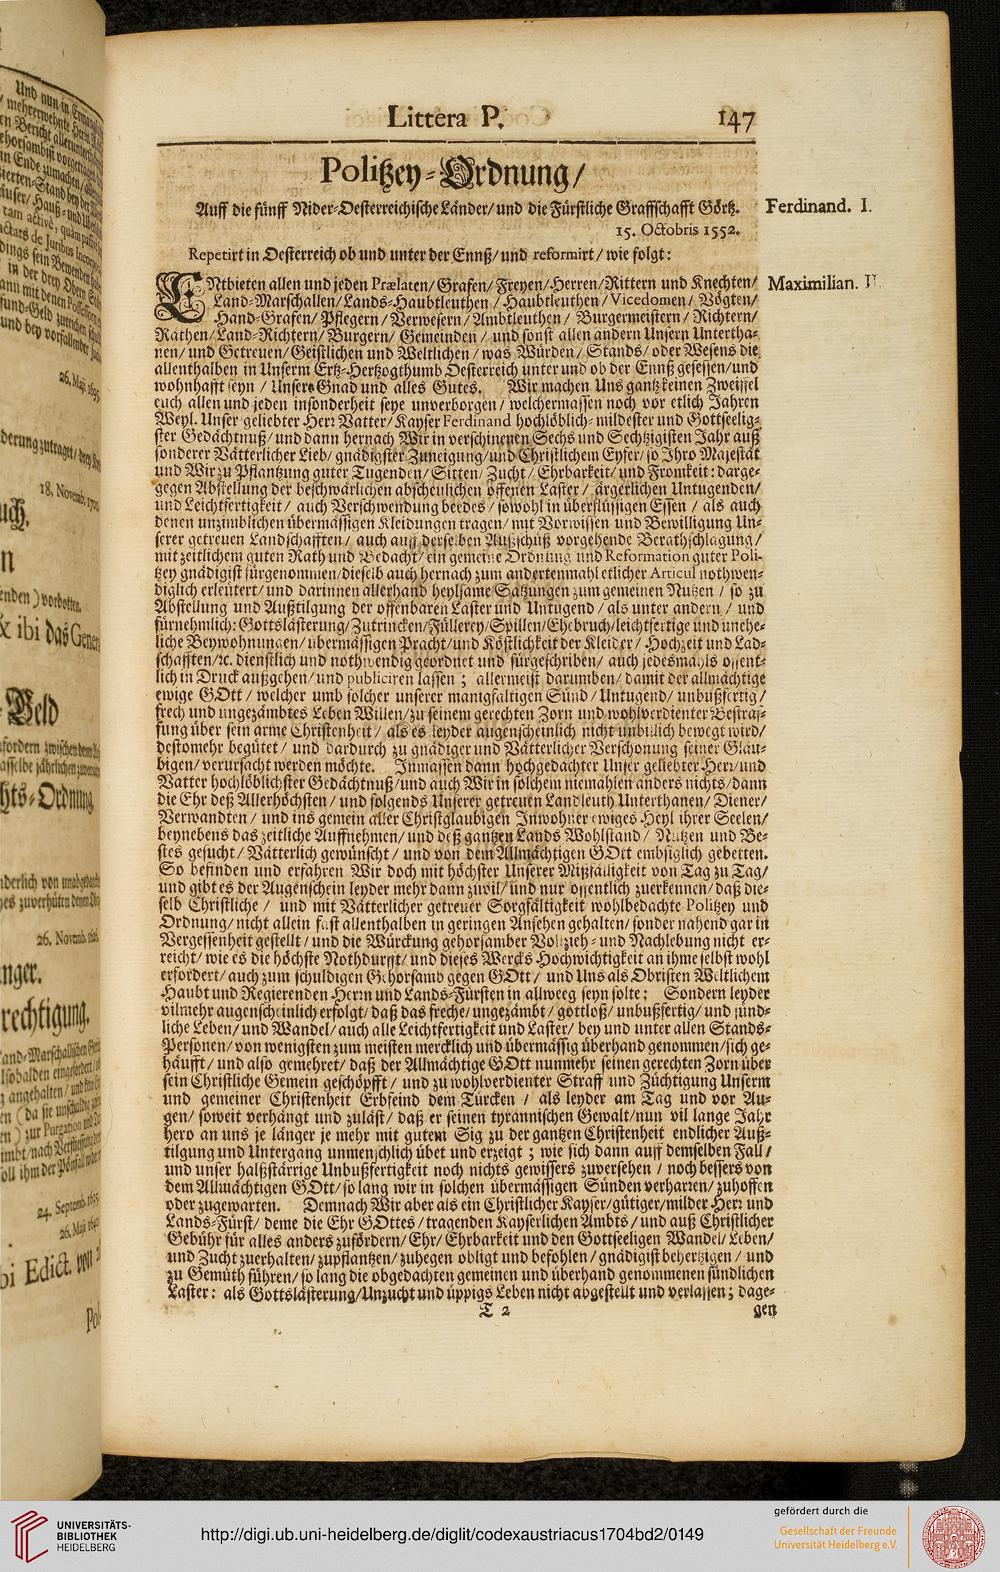 Littera P. 147
Politzey-Ordnung/
Auff die fünff Nider-Oesterreichische Länder/ und die Fürstliche Graffschafft Görtz.
15. Octobris 1552.
Ferdinand. I.
Repetirt in Oesterreich ob und unter der Ennß/ und reformirt/ wie folgt:
Maximilian. II.
ENtbieten allen und jeden Prælaten/ Grafen/ Freyen/ Herren/ Rittern und Knechten/
Land-Marschallen/ Lands-Haubtleuthen/ Haubtleuthen/ Vicedomen/ Vögten/
Hand-Grafen/ Pflegern/ Verwesern/ Ambtleuthen/ Burgermeistern/ Richtern/
Räthen/ Land-Richtern/ Burgern/ Gemeinden/ und sonst allen andern Unsern Untertha-
nen/ und Getreuen/ Geistlichen und Weltlichen/ was Würden/ Stands/ oder Wesens die
allenthalben in Unserm Ertz-Hertzogthumb Oesterreich unter und ob der Ennß gesessen/ und
wohnhafft seyn/ Unsere Gnad und alles Gutes. Wir machen Uns gantz keinen Zweiffel
euch allen und jeden insonderheit seye unverborgen/ welchermassen noch vor etlich Jahren
Weyl. Unser geliebter Herr Vatter/ Kayser Ferdinand hochlöblich-mildester und Gottseelig-
ster Gedächtnuß/ und dann hernach Wir in verschinenen Sechs und Sechtzigisten Jahr auß
sonderer Vätterlicher Lieb/ gnädigster Zuneigung/ und Christlichem Eyfer/ so Ihro Majestät
und Wir zu Pflantzung guter Tugenden/ Sitten/ Zucht/ Ehrbarkeit/ und Fromkeit: darge-
gegen Abstellung der beschwärlichen abscheulichen offenen Laster/ ärgerlichen Untugenden/
und Leichtfertigkeit/ auch Verschwendung beedes/ sowohl in überflüssigen Essen/ als auch
denen unzimblichen übermässigen Kleidungen tragen/ mit Vorwissen und Bewilligung Un-
serer getreuen Landschafften/ auch auff derselben Außschuß vorgehende Berathschlagung/
mit zeitlichem guten Rath und Bedacht/ ein gemeine Ordnung und Reformation guter Poli-
tzey gnädigist fürgenommen/ dieselb auch hernach zum andertenmahl etlicher Articul nothwen-
diglich erleütert/ und darinnen allerhand heylsame Satzungen zum gemeinen Nutzen/ so zu
Abstellung und Außtilgung der offenbaren Laster und Untugend/ als unter andern/ und
fürnehmlich: Gottslästerung/ Zutrincken/ Füllerey/ Spillen/ Ehebruch/ leichtfertige und unehe-
liche Beywohnungen/ übermässigen Pracht/ und Köstlichkeit der Kleider/ Hochzeit und Lad-
schafften/ ꝛc. dienstlich und nothwendig geordnet und fürgeschriben/ auch jedesmahls offent-
lich in Druck außgehen/ und publiciren lassen; allermeist darumben/ damit der allmächtige
ewige GOtt/ welcher umb solcher unserer manigfaltigen Sünd/ Untugend/ unbußfertig/
frech und ungezämbtes Leben Willen/ zu seinem gerechten Zorn und wohlverdienter Bestraf-
fung über sein arme Christenheit/ als es leyder augenscheinlich nicht unbillich bewegt wird/
destomehr begütet/ und dardurch zu gnädiger und Vätterlicher Verschonung seiner Glau-
bigen/ verursacht werden möchte. Inmassen dann hochgedachter Unser geliebter Herr/ und
Vatter hochlöblichster Gedächtnuß/ und auch Wir in solchem niemahlen anders nichts/ dann
die Ehr deß Allerhöchsten/ und folgends Unserer getreuen Landleuth Unterthanen/ Diener/
Verwandten/ und ins gemein aller Christglaubigen Inwohner ewiges Heyl ihrer Seelen/
beynebens das zeitliche Auffnehmen/ und deß gantzen Lands Wohlstand/ Nutzen und Be-
stes gesucht/ Vätterlich gewünscht/ und von dem Allmächtigen GOtt embsiglich gebetten.
So befinden und erfahren Wir doch mit höchster Unserer Mißfälligkeit von Tag zu Tag/
und gibt es der Augenschein leyder mehr dann zuvil/ und nur offentlich zuerkennen/ daß die-
selb Christliche/ und mit Vätterlicher getreuer Sorgfältigkeit wohlbedachte Politzey und
Ordnung/ nicht allein fast allenthalben in geringen Ansehen gehalten/ sonder nahend gar in
Vergessenheit gestellt/ und die Würckung gehorsamber Vollzieh- und Nachlebung nicht er-
reicht/ wie es die höchste Nothdurfft/ und dieses Wercks Hochwichtigkeit an ihme selbst wohl
erfordert/ auch zum schuldigen Gehorsamb gegen GOtt/ und Uns als Obristen Weltlichem
Haubt und Regierenden Herrn und Lands-Fürsten in allweeg seyn solte: Sondern leyder
vilmehr augenscheinlich erfolgt/ daß das freche/ ungezämbt/ gottloß/ unbußfertig/ und sünd-
liche Leben/ und Wandel/ auch alle Leichtfertigkeit und Laster/ bey und unter allen Stands-
Personen/ von wenigsten zum meisten mercklich und übermässig überhand genommen/ sich ge-
häufft/ und also gemehret/ daß der Allmächtige GOtt nunmehr seinen gerechten Zorn über
sein Christliche Gemein geschöpfft/ und zu wohlverdienter Straff und Züchtigung Unserm
und gemeiner Christenheit Erbfeind dem Türcken/ als leyder am Tag und vor Au-
gen/ soweit verhängt und zuläst/ daß er seinen tyrannischen Gewalt/ nun vil lange Jahr
hero an uns je länger je mehr mit gutem Sig zu der gantzen Christenheit endlicher Auß-
tilgung und Untergang unmenschlich übet und erzeigt; wie sich dann auff demselben Fall/
und unser halßstärrige Unbußfertigkeit noch nichts gewissers zuversehen/ noch bessers von
dem Allmächtigen GOtt/ so lang wir in solchen übermässigen Sünden verharren/ zuhoffen
oder zugewarten. Demnach Wir aber als ein Christlicher Kayser/ gütiger/ milder Herr und
Lands-Fürst/ deme die Ehr GOttes/ tragenden Kayserlichen Ambts/ und auß Christlicher
Gebühr für alles anders zufördern/ Ehr/ Ehrbarkeit und den Gottseeligen Wandel/ Leben/
und Zucht zuerhalten/ zupflantzen/ zuhegen obligt und befohlen/ gnädigist behertzigen/ und
zu Gemüth führen/ so lang die obgedachten gemeinen und überhand genommenen sündlichen
Laster: als Gottslästerung/ Unzucht und üppigs Leben nicht abgestellt und verlassen; dage-
T 2 gen
UNIVERSITÄTS-
BIBLIOTHEK
HEIDELBERG
http://digi.ub.uni-heidelberg.de/diglit/codexaustriacus1704bd2/0149
gefördert durch die
Gesellschaft der Freunde
Universität Heidelberg e.V.